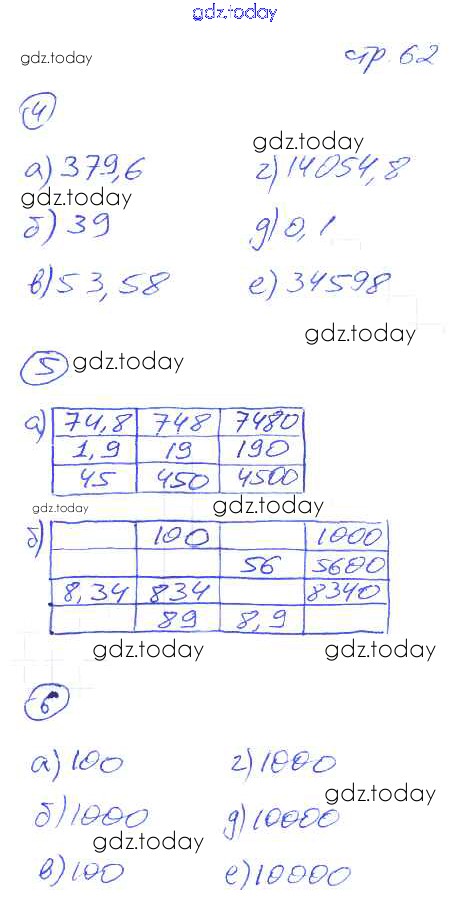 gdz.today
gdz.today стр. 62
4
gdz.today
а) 379,6 г) 14054,8
gdz.today
б) 39 д) 0,1
в) 53,58 е) 34598
gdz.today
5 gdz.today
а) 74,8 748 7480
1,9 19 190
45 450 4500
gdz.today gdz.today
б) 100 1000
56 5600
8,34 834 8340
89 8,9
gdz.today gdz.today
6
а) 100 г) 1000
gdz.today
б) 1000 д) 10000
gdz.today
в) 100 е) 10000